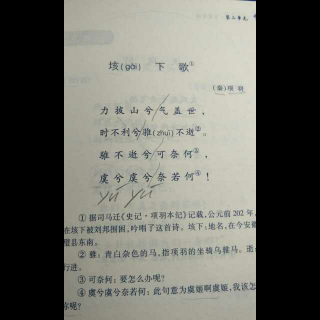 第二单元
垓(gāi) 下 歌①
(秦)项 羽
力拔山兮气盖世，
时不利兮骓(zhuī)不逝②。
骓不逝兮可奈何③，
虞兮虞兮奈若何④！
yú yú
① 据司马迁《史记·项羽本纪》记载，公元前 202 年，
在垓下被刘邦围困，吟唱了这首诗。垓下：地名，在今安徽
璧县东南。
② 骓：青白杂色的马，指项羽的坐骑乌骓马。逝：
行进。
③ 可奈何：要怎么办呢？
④ 虞兮虞兮奈若何：此句意为虞姬啊虞姬，我该怎
你呢？